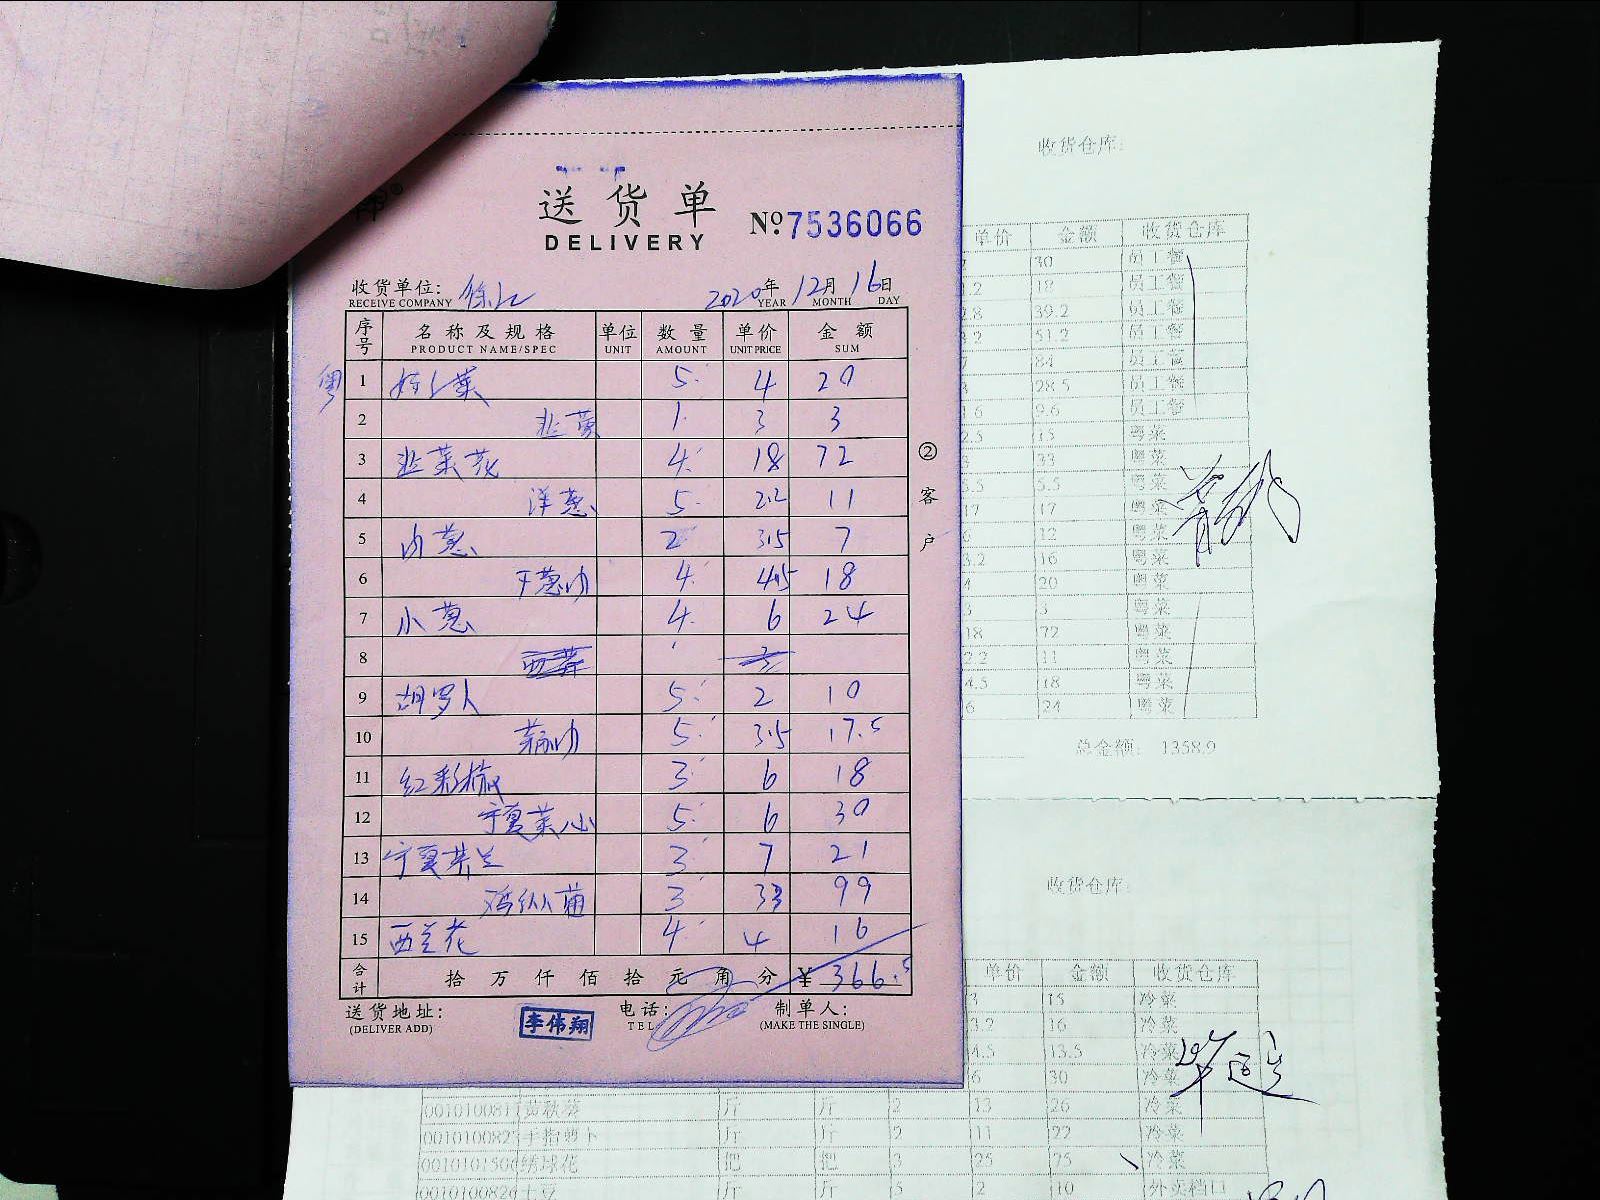 送货单
DELIVERY
Nº 7536066
收货单位:
RECEIVE COMPANY
2020年 12月 16日
YEAR MONTH DAY
序号 名称及规格 单位 数量 单价 金额
PRODUCT NAME/SPEC UNIT AMOUNT UNIT PRICE SUM
粤
1 5 4 20
2 韭黄 1 3 3
3 韭菜花 4 18 72
4 洋葱 5 2.2 11
5 内葱 2 3.5 7
6 干葱 4 4.5 18
7 小葱 4 6 24
8
9 胡罗卜 5 2 10
10 5 3.5 17.5
11 红彩椒 3 6 18
12 宁夏菜心 5 6 30
13 宁夏芥兰 3 7 21
14 鸡纵菌 3 33 99
15 西兰花 4 4 16
合计 拾 万 仟 佰 拾 元 角 分 ¥ 366.5
送货地址: 电话: 制单人:
(DELIVER ADD) TEL (MAKE THE SINGLE)
李伟翔
②客户
收货仓库:
单价 金额 收货仓库
30 员工餐
.2 18 员工餐
.8 39.2 员工餐
.2 51.2 员工餐
84 员工餐
28.5 员工餐
.6 9.6 员工餐
2.5 15 粤菜
33 粤菜
5.5 5.5 粤菜
17 17 粤菜
6 12 粤菜
3.2 16 粤菜
4 20 粤菜
3 3 粤菜
18 72 粤菜
2.2 11 粤菜
4.5 18 粤菜
6 24 粤菜
总金额: 1358.9
收货仓库:
单价 金额 收货仓库
3 15 冷菜
3.2 16 冷菜
4.5 13.5 冷菜
6 30 冷菜
斤 斤 2 13 26 冷菜
手指萝卜 斤 斤 2 11 22 冷菜
绣球花 把 把 3 25 75 冷菜
土豆 斤 斤 5 2 10 外卖档口